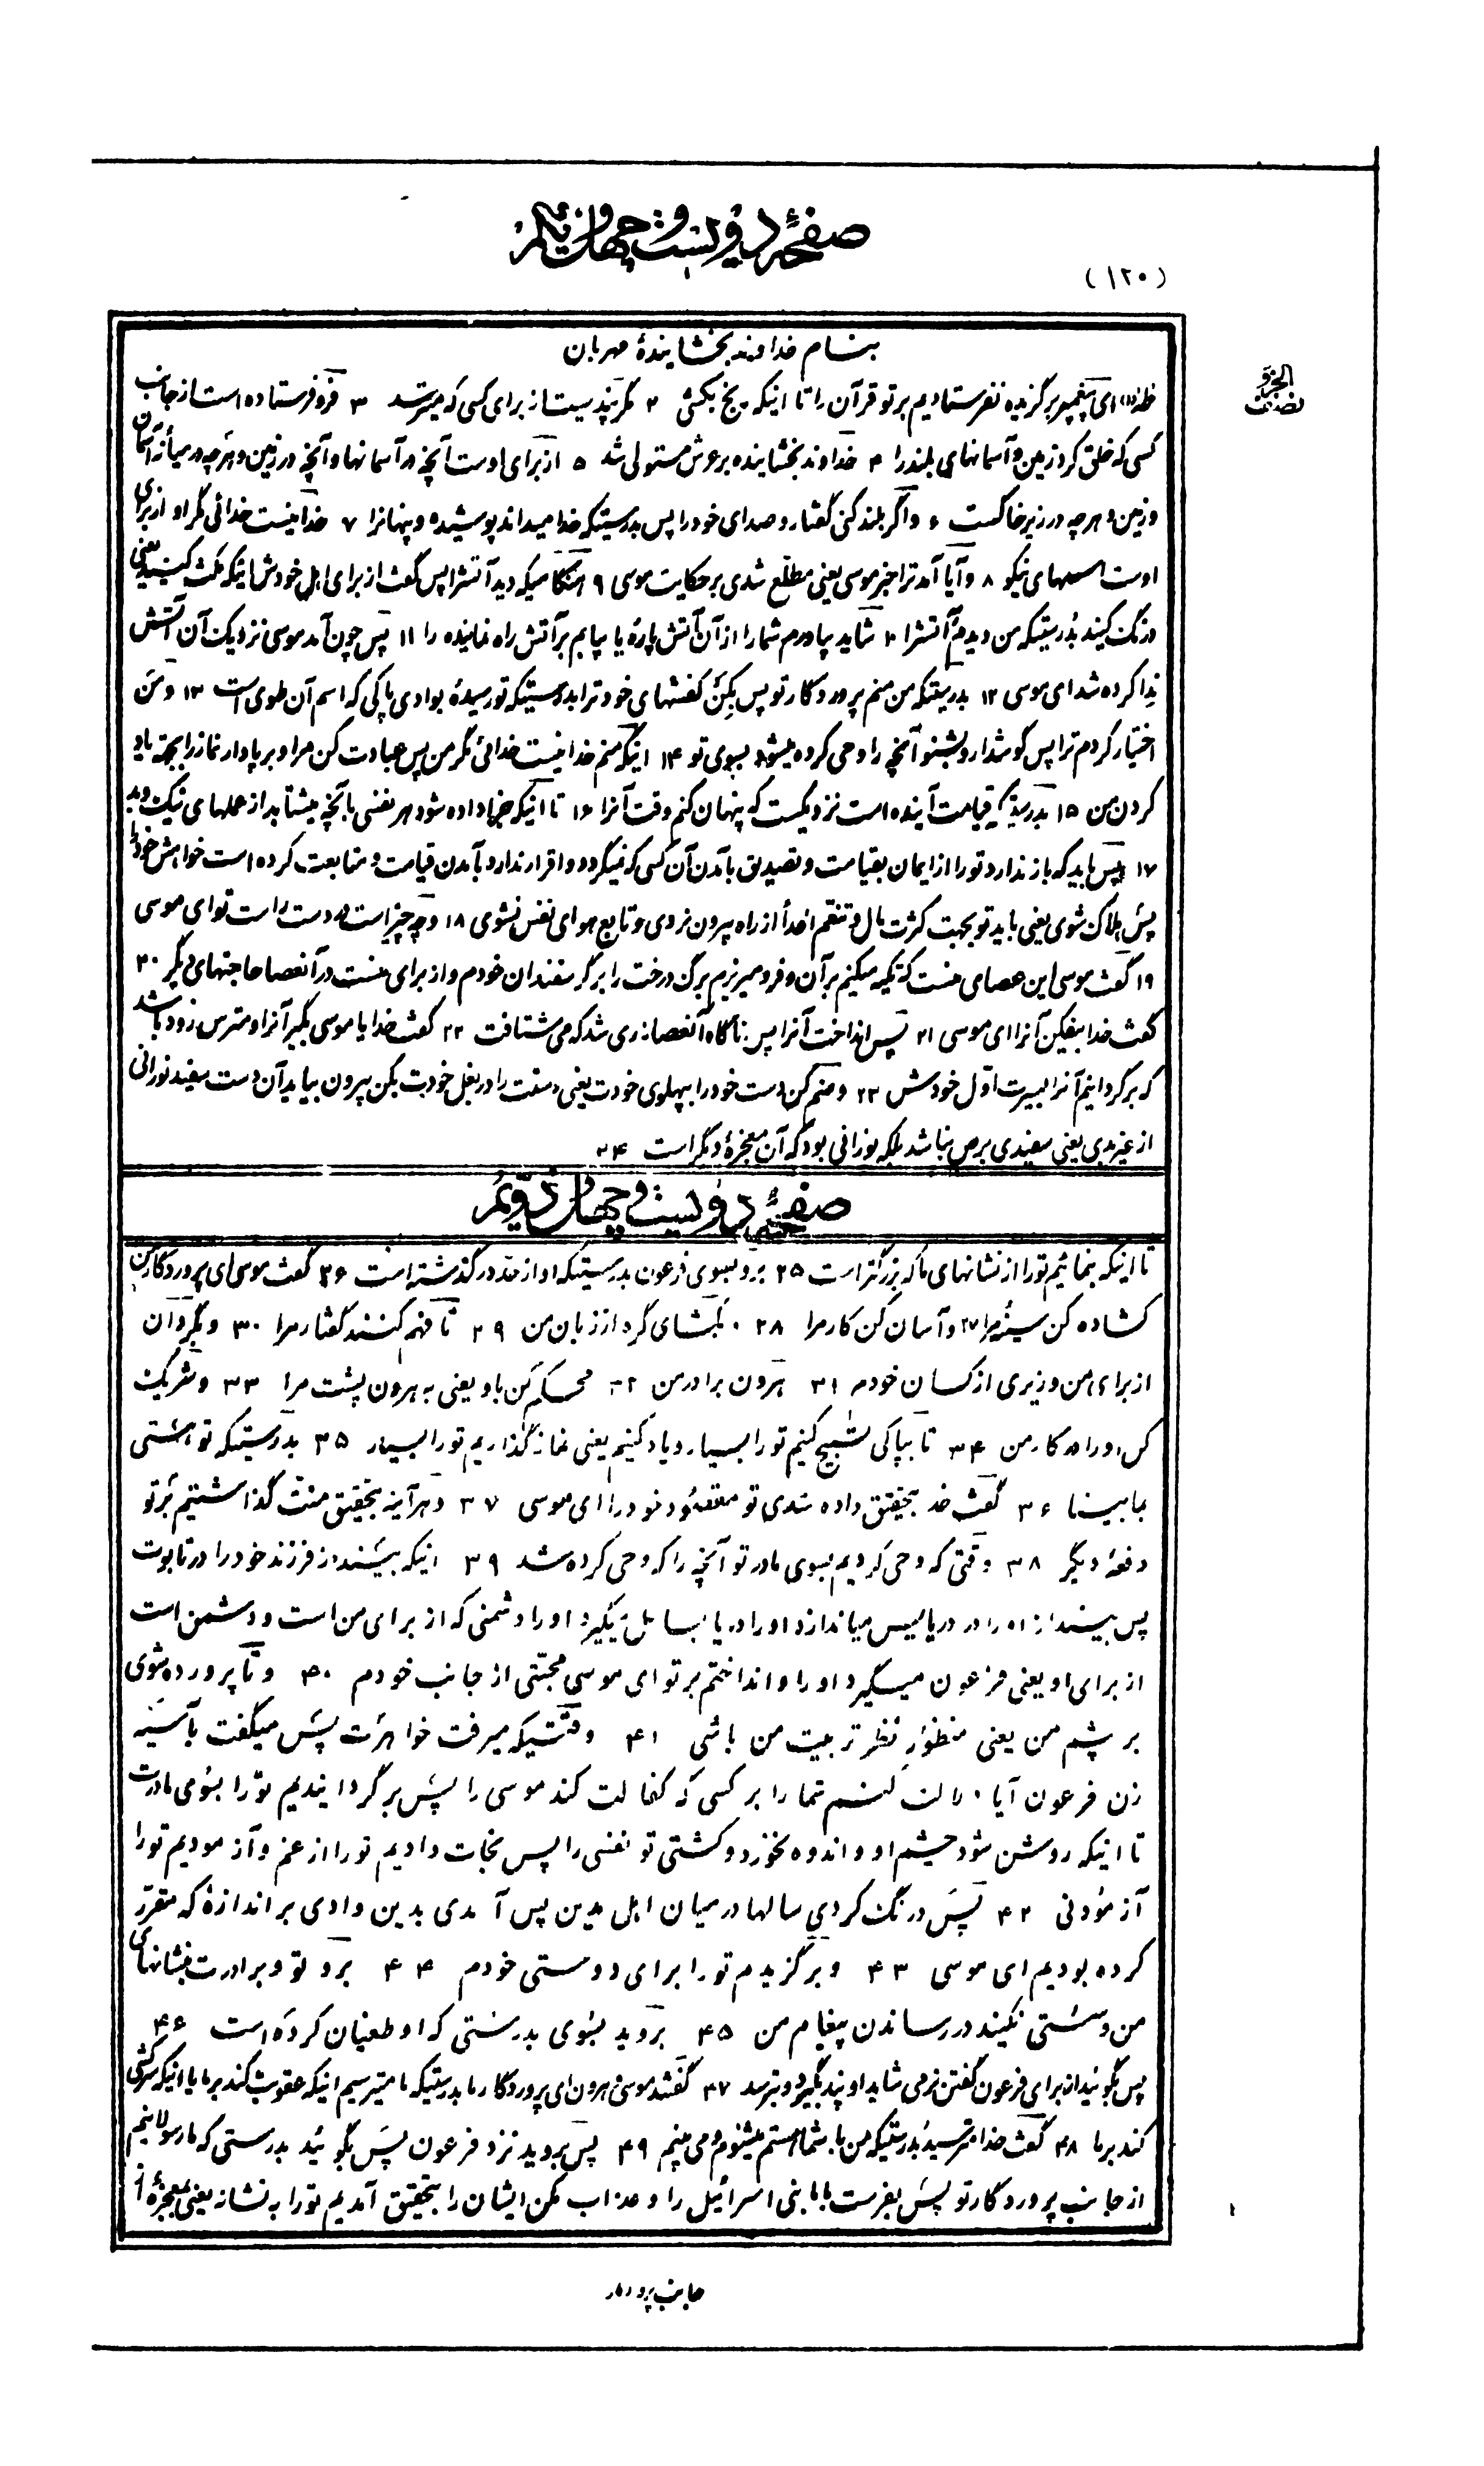 صفحهٔ دویست و چهل و یکم
(۱۲۰)
نصف الجزو
بنام خداوند بخشایندهٔ مهربان
طه (۱) ای پیغمبر برگزیده نفرستادیم بر تو قرآن را تا اینکه رنج بکشی ۲ مگر پندیست از برای کسی که میترسد ۳ فرو فرستاده است از جانب
کسی که خلق کرد زمین و آسمانهای بلند را ۴ خداوند بخشاینده بر عرش مستولی شد ۵ از برای اوست آنچه در آسمانها و آنچه در زمین و هرچه در میانه آسمان
و زمین و هرچه در زیر خاکست ۶ و اگر بلند کنی گفتار و صدای خود را پس بدرستیکه خدا میداند پوشیده و پنهانرا ۷ خدا نیست خدائی مگر او از برای
اوست اسمهای نیکو ۸ و آیا آمد ترا خبر موسی یعنی مطلع شدی بر حکایت موسی ۹ هنگامیکه دید آتشرا پس گفت از برای اهل خودش اینکه مکث کنید یعنی
درنگ کنید بدرستیکه من دیدم آتشرا ۱۰ شاید بیاورم شما را از آن آتش پارهٔ یا بیابم بر آتش راه نماینده را ۱۱ پس چون آمد موسی نزدیک آن آتش
ندا کرده شد ای موسی ۱۲ بدرستیکه من منم پروردگار تو پس بکن کفشهای خود ترا بدرستیکه تو رسیدهٔ بوادی پاکی که اسم آن طوی است ۱۳ و من
اختیار کردم ترا پس گوشدار و بشنو آنچه را وحی کرده میشود بسوی تو ۱۴ اینکه منم خدا نیست خدائی مگر من پس عبادت کن مرا و برپا دار نماز را بجهة یاد
کردن من ۱۵ بدرستیکه قیامت آینده است نزدیکست که پنهان کنم وقت آنرا ۱۶ تا اینکه جزا داده شود هر نفسی بآنچه میشتابد از عملهای نیک و بد
۱۷ پس باید که باز ندارد تو را از ایمان بقیامت و تصدیق بآمدن آن کسی که نمیگرود و اقرار ندارد بآمدن قیامت و متابعت کرده است خواهش خود را
پس هلاک شوی یعنی باید تو بجهت کثرت مال و تنعم اعدا از راه بیرون نروی و تابع هوای نفس نشوی ۱۸ و چه چیز است در دست راست تو ای موسی
۱۹ گفت موسی این عصای منست که تکیه میکنم بر آن و فرو میریزم برگ درخت را بر گوسفندان خودم و از برای منست در آنعصا حاجتهای دیگر ۲۰
گفت خدا بیفکن آنرا ای موسی ۲۱ پس انداخت آنرا پس ناگاه آنعصا زری شد که می شتافت ۲۲ گفت خدا یا موسی بگیر آنرا و مترس زود باشد
که برگردانیم آنرا بسیرت اوّل خودش ۲۳ و ضم کن دست خود را ببهلوی خودت یعنی دستت را در بغل خودت بکن بیرون بیاید آن دست سفید نورانی
از غیر بدی یعنی سفیدی برص نباشد بلکه نورانی بود که آن معجزهٔ دیگر است ۲۴
صفحهٔ دویست و چهل و دویم
تا اینکه بنمائیم تو را از نشانهای ما که بزرگتر است ۲۵ برو بسوی فرعون بدرستیکه او از حد در گذشته است ۲۶ گفت موسی ای پروردگار من
گشاده کن سینهٔ مرا ۲۷ و آسان کن کار مرا ۲۸ بگشای گره از زبان من ۲۹ تا فهم کنند گفتار مرا ۳۰ و بگردان
از برای من وزیری از کسان خودم ۳۱ هرون برادر من ۳۲ محکم کن باو یعنی به هرون پشت مرا ۳۳ و شریک
کن او را در کار من ۳۴ تا بپاکی تسبیح کنیم تو را بسیار و یاد کنیم یعنی نماز گذاریم تو را بسیار ۳۵ بدرستیکه تو هستی
بما بینا ۳۶ گفت خدا بتحقیق داده شدی تو مقصود خود را ای موسی ۳۷ و هر آینه بتحقیق منت گذاشتیم بر تو
دفعهٔ دیگر ۳۸ وقتی که وحی کردیم بسوی مادر تو آنچه را که وحی کرده شد ۳۹ اینکه بینداز فرزند خود را در تابوت
پس بینداز او را در دریا پس میاندازد او را دریا بساحل بگیرد او را دشمنی که از برای من است و دشمن است
از برای او یعنی فرعون میگیرد او را و انداختم بر تو ای موسی محبتی از جانب خودم ۴۰ و تا پرورده شوی
بر چشم من یعنی منظور نظر تربیت من باشی ۴۱ وقتیکه میرفت خواهرت پس میگفت بآسیه
زن فرعون آیا دلالت کنم شما را بر کسی که کفالت کند موسی را پس برگردانیدیم تو را بسوی مادرت
تا اینکه روشن شود چشم او و اندوه نخورد و کشتی تو نفسی را پس نجات دادیم تو را از غم و آزمودیم تو را
آزمودنی ۴۲ پس درنگ کردی سالها در میان اهل مدین پس آمدی بدین وادی بر اندازهٔ که مقرّر
کرده بودیم ای موسی ۴۳ و برگزیدم تو را برای دوستی خودم ۴۴ برو تو و برادرت بنشانهای
من و سستی نکنید در رساندن پیغام من ۴۵ بروید بسوی بدرستی که او طغیان کرده است ۴۶
پس بگوئید از برای فرعون گفتن نرمی شاید او پند بگیرد و بترسد ۴۷ گفتند موسی و هرون ای پروردگار ما بدرستیکه ما میترسیم اینکه عقوبت کند بر ما یا اینکه سرکشی
کند بر ما ۴۸ گفت خدا مترسید بدرستیکه من با شما هستم میشنوم و می بینم ۴۹ پس بروید نزد فرعون پس بگوئید بدرستی که ما رسولانیم
از جانب پروردگار تو پس بفرست با ما بنی اسرائیل را و عذاب مکن ایشان را بتحقیق آمدیم تو را به نشانه یعنی بمعجزهٔ از
جانب پرودار